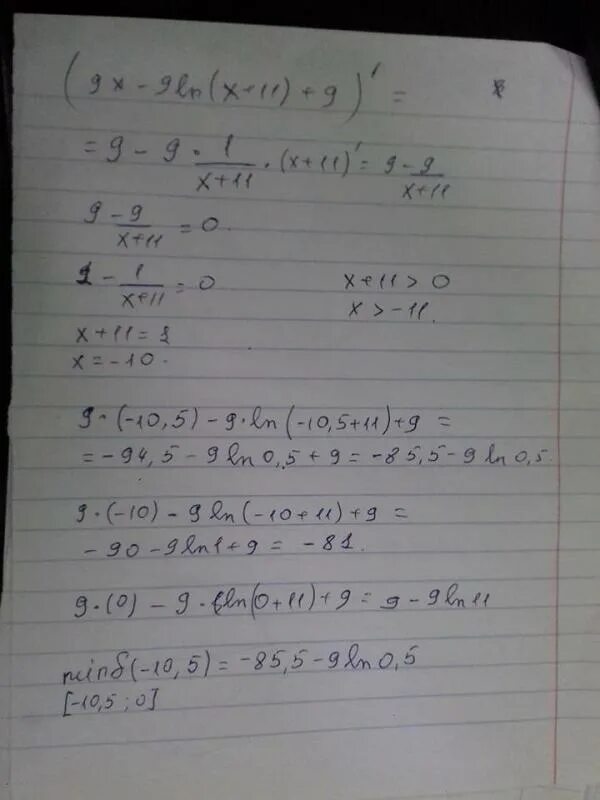 (9x - 9ln(x+11) + 9)' =
= 9 - 9 · 1/(x+11) · (x+11)' = 9 - 9/(x+11)
9 - 9/(x+11) = 0.
1 - 1/(x+11) = 0
x+11 > 0
x > -11.
x + 11 = 1
x = -10.
9·(-10,5) - 9·ln(-10,5+11)+9 =
= -94,5 - 9 ln 0,5 + 9 = -85,5 - 9 ln 0,5.
9·(-10) - 9 ln(-10+11)+9 =
-90 - 9 ln 1 + 9 = -81.
9·(0) - 9·ln(0+11)+9 = 9 - 9 ln 11
min б(-10,5) = -85,5 - 9 ln 0,5
[-10,5 ; 0]